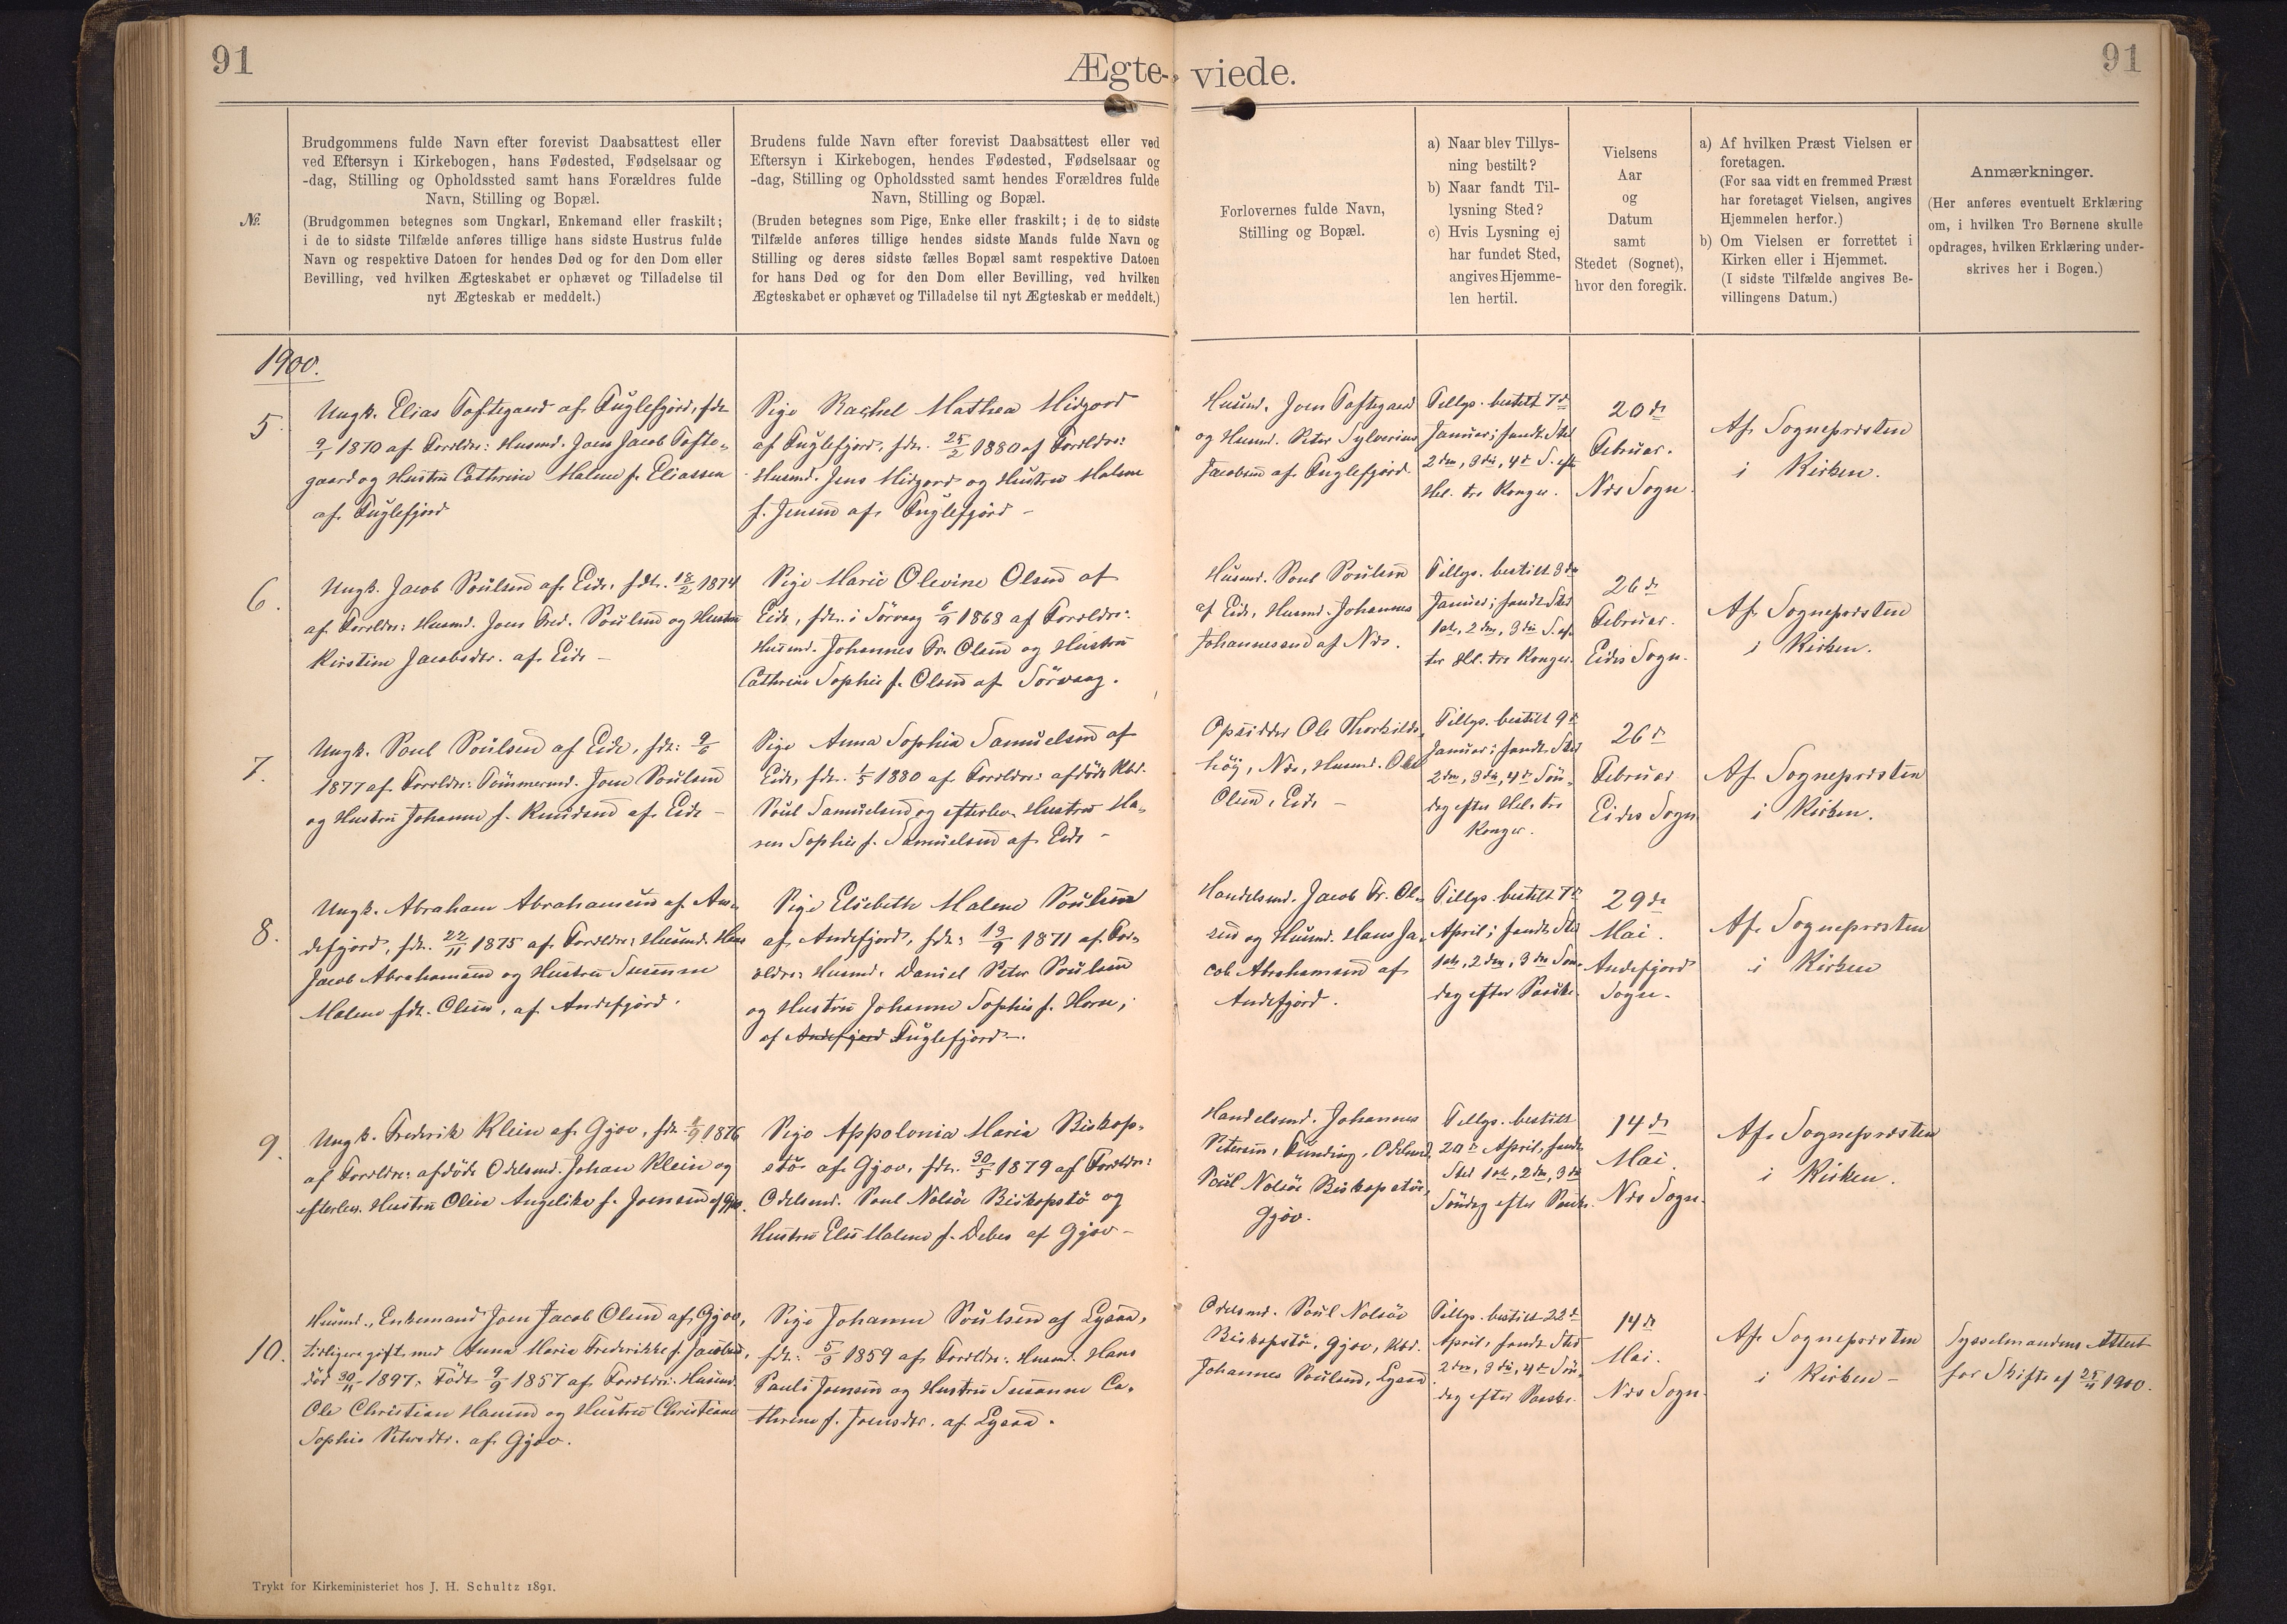 91
Ægte-
viede.
91
№
Brudgommens fulde Navn efter forevist Daabsattest eller
ved Eftersyn i Kirkebogen, hans Fødested, Fødselsaar og
-dag, Stilling og Opholdssted samt hans Forældres fulde
Navn, Stilling og Bopæl.
(Brudgommen betegnes som Ungkarl, Enkemand eller fraskilt;
i de to sidste Tilfælde anføres tillige hans sidste Hustrus fulde
Navn og respektive Datoen for hendes Død og for den Dom eller
Bevilling, ved hvilken Ægteskabet er ophævet og Tilladelse til
nyt Ægteskab er meddelt.)
Brudens fulde Navn efter forevist Daabsattest eller ved
Eftersyn i Kirkebogen, hendes Fødested, Fødselsaar og
-dag, Stilling og Opholdssted samt hendes Forældres fulde
Navn, Stilling og Bopæl.
(Bruden betegnes som Pige, Enke eller fraskilt; i de to sidste
Tilfælde anføres tillige hendes sidste Mands fulde Navn og
Stilling og deres sidste fælles Bopæl samt respektive Datoen
for hans Død og for den Dom eller Bevilling, ved hvilken
Ægteskabet er ophævet og Tilladelse til nyt Ægteskab er meddelt.)
Forlovernes fulde Navn,
Stilling og Bopæl.
a) Naar blev Tillys-
ning bestilt?
b) Naar fandt Til-
lysning Sted?
c) Hvis Lysning ej
har fundet Sted,
angives Hjemme-
len hertil.
Vielsens
Aar
og
Datum
samt
Stedet (Sognet),
hvor den foregik.
a) Af hvilken Præst Vielsen er
foretagen.
(For saa vidt en fremmed Præst
har foretaget Vielsen, angives
Hjemmelen herfor.)
b) Om Vielsen er forrettet i
Kirken eller i Hjemmet.
(I sidste Tilfælde angives Be-
villingens Datum.)
Anmærkninger.
(Her anføres eventuelt Erklæring
om, i hvilken Tro Børnene skulle
opdrages, hvilken Erklæring under-
skrives her i Bogen.)
1900.
5.
Ungk. Elias Toftegaard af Fuglefjord, fdt.
9/1 1870 af Forældre: Husmd. Joen Jacob Tofte-
gaard og Hustru Cathrine Malene f. Eliassen
af Fuglefjord
Pige Rachel Mathea Midjord
af Fuglefjord, fdt. 25/2 1880 af Forældre:
Husmd. Jens Midjord og Hustru Malene
f. Jensen af Fuglefjord -
Husmd. Joen Toftegaard
og Husmd. Peter Sylverius
Jacobsen af Fuglefjord
Tillys. bestilt 7de
Januar; fandt Sted
2den, 3die, 4de S. eft.
Hel. tre Konger.
20de
Februar.
Næs Sogn.
Af Sognepræsten
i Kirken.
6.
Ungk. Jacob Poulsen af Eide, fdt. 18/2 1874
af Forældre: Husmd. Joen Fred. Poulsen og Hustru
Kirstine Jacobsdtr. af Eide -
Pige Marie Olevine Olsen af
Eide, fdt. i Sörvaag 6/9 1868 af Forældre:
Husmd. Johannes Fr. Olsen og Hustru
Cathrine Sophie f. Olsen af Sörvaag.
Husmd. Poul Poulsen
af Eide, Husmd. Johannes
Johannesend af Næs.
Tillys. bestilt 8de
Januar; fandt Sted
1ste, 2den, 3die S. ef-
ter Hel. tre Konger.
26de
Februar.
Eides Sogn.
Af Sognepræsten
i Kirken.
7.
Ungk. Poul Poulsen af Eide, fdt: 9/6
1877 af Forældre: Tömmermd. Joen Poulsen
og Hustru Johanne f. Knudsend af Eide -
Pige Anna Sophia Samuelsen af
Eide, fdt. 1/5 1880 af Forældre: afdöde Kbd.
Poul Samuelsend og efterlev. Hustru Ma-
ren Sophie f. Samuelsend af Eide -
Opsidder Ole Thorkilds-
höj, Næs, Husmd. Ole
Olsen, Eide -
Tillys. bestilt 9de
Januar; fandt Sted
2den, 3die, 4de Sön-
dag efter Hel. tre
Konger.
26de
Februar
Eides Sogn
Af Sognepræsten
i Kirken.
8.
Ungk. Abraham Abrahamsen af An-
defjord, fdt. 22/11 1875 af Forældre: Husmd. Hans
Jacob Abrahamsend og Hustru Susanne
Malene fdt. Olsen, af Andefjord.
Pige Elsebeth Malene Poulsen
af Andefjord, fdt: 19/9 1871 af For-
ældre: Husmd. Daniel Peter Poulsen
og Hustru Johanne Sophie f. Horn,
af Andefjord Fuglefjord -.
Handelsmd. Jacob Fr. Ol-
sen og Husmd. Hans Ja-
cob Abrahamsend af
Andefjord.
Tillys. bestilt 7de
April; fandt Sted
1ste, 2den, 3die Sön-
dag efter Paaske.
29de
Mai.
Andefjord
Sogn.
Af Sognepræsten
i Kirken
9.
Ungk. Frederik Klein af Gjov, fdt. 8/9 1876
af Forældre: afdöde Odelsmd. Johan Klein og
efterlev. Hustru Olivia Angelika f. Joensen af Gjov.
Pige Appolonia Maria Biskop-
stö af Gjov, fdt. 30/5 1879 af Forældre:
Odelsmd. Poul Nolsöe Biskopstö og
Hustru Else Malene f. Debes af Gjov -
Handelsmd. Johannes
Petersen, Funding, Odelsmd.
Poul Nolsöe Biskopstö,
Gjov.
Tillys. bestilt
20de April, fandt
Sted 1ste, 2den, 3die
Söndag efter Paaske.
14de
Mai.
Næs Sogn.
Af Sognepræsten
i Kirken.
10.
Husmd., Enkemand Joen Jacob Olsen af Gjov,
tidligere gift med Anna Maria Frederikke f. Jacobsen,
död 30/11 1897. Födt 9/9 1857 af Forældre: Husmd.
Ole Christian Hansend og Hustru Christiane
Sophie Petersdtr. af Gjov.
Pige Johanne Poulsen af Lysaa,
fdt: 5/9 1859 af Forældre: Husmd. Hans
Pauli Joensen og Hustru Susanne Ca-
thrine f. Joensdtr. af Lysaa.
Odelsmd. Poul Nolsöe
Biskopstö, Gjov, Kbd.
Johannes Poulsend, Lysaa
Tillys. bestilt 22de
April, fandt Sted
2den, 3die, 4de Sön-
dag efter Paaske.
14de
Mai.
Næs Sogn
Af Sognepræsten
i Kirken -
Sysselmandens Attest
for Skifte af 25/4 1900.
Trykt for Kirkeministeriet hos J. H. Schultz 1891.